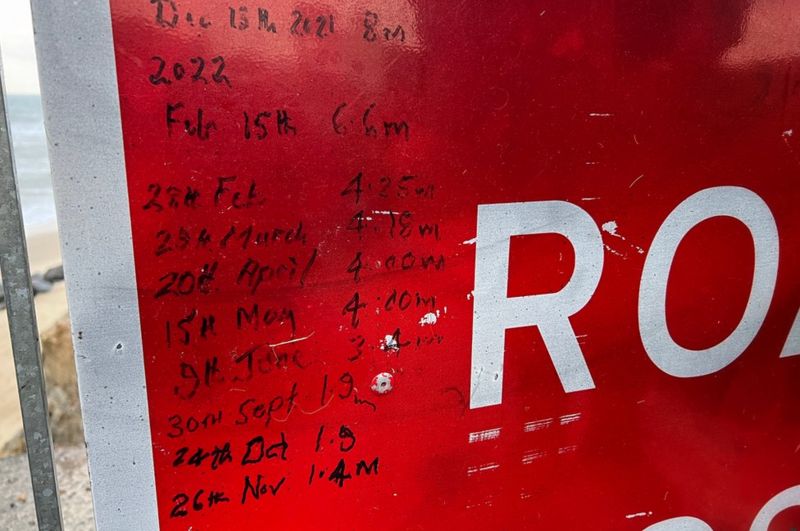 Dec 13th 2021 8m
2022
Feb 15th 6.6m
22th Feb 4.25m
25th March 4.18m
20th April 4.00m
15th May 4.00m
9th June 3.4m
30TH Sept 1.9m
24th Oct 1.9
26th Nov 1.4M
RO